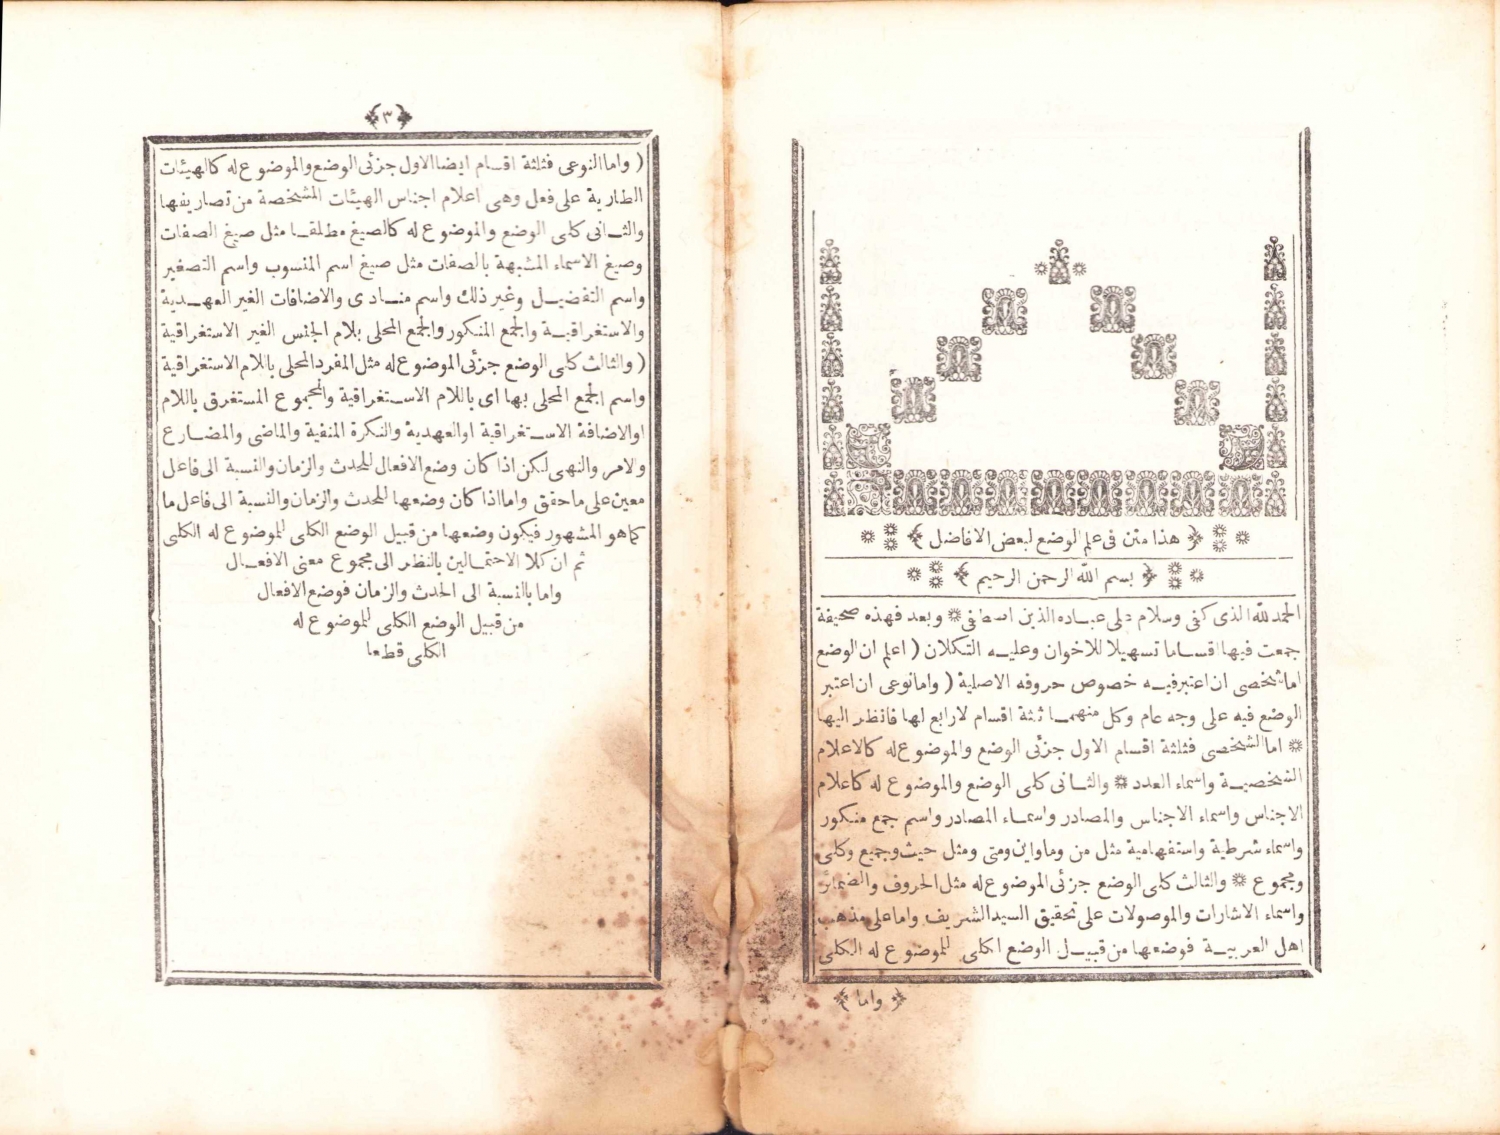 ﴿ هذا متن فى علم الوضع لبعض الافاضل ﴾
﴿ بسم الله الرحمن الرحيم ﴾
الحمد لله الذى كفى وسلام على عباده الذين اصطفى * وبعد فهذه صحيفة
جمعت فيها اقساما تسهيلا للاخوان وعليه التكلان ( اعلم ان الوضع
اما شخصى ان اعتبر فيه خصوص حروفه الاصلية ( واما نوعى ان اعتبر
الوضع فيه على وجه عام وكل منهما ثلثة اقسام لا رابع لها فانظر اليها
* اما الشخصى فثلثة اقسام الاول جزئى الوضع والموضوع له كالاعلام
الشخصية واسماء العدد * والثانى كلى الوضع والموضوع له كاعلام
الاجناس واسماء الاجناس والمصادر واسماء المصادر واسم جمع منكور
واسماء شرطية واستفهامية مثل من وما واين ومتى ومثل حيث وجميع وكلى
ومجموع * والثالث كلى الوضع جزئى الموضوع له مثل الحروف والضمائر
واسماء الاشارات والموصولات على تحقيق السيد الشريف واما على مذهب
اهل العربية فوضعها من قبيل الوضع الكلى للموضوع له الكلى
﴿ واما ﴾
﴿ ٣ ﴾
( واما النوعى فثلثة اقسام ايضا الاول جزئى الوضع والموضوع له كالهيئات
الطارية على فعل وهى اعلام اجناس الهيئات المشخصة من تصاريفها
والثانى كلى الوضع والموضوع له كالصيغ مطلقا مثل صيغ الصفات
وصيغ الاسماء المشبهة بالصفات مثل صيغ اسم المنسوب واسم التصغير
واسم التفضيل وغير ذلك واسم منادى والاضافات الغير العهدية
والاستغراقية والجمع المنكور والجمع المحلى بلام الجنس الغير الاستغراقية
( والثالث كلى الوضع جزئى الموضوع له مثل المفرد المحلى باللام الاستغراقية
واسم الجمع المحلى بها اى باللام الاستغراقية والمجموع المستغرق باللام
او الاضافة الاستغراقية او العهدية والنكرة المنفية والماضى والمضارع
والامر والنهى لكن اذا كان وضع الافعال للحدث والزمان والنسبة الى فاعل
معين على ما حقق واما اذا كان وضعها للحدث والزمان والنسبة الى فاعل ما
كما هو المشهور فيكون وضعها من قبيل الوضع الكلى للموضوع له الكلى
ثم ان كلا الاحتمالين بالنظر الى مجموع معنى الافعال
واما بالنسبة الى الحدث والزمان فوضع الافعال
من قبيل الوضع الكلى للموضوع له
الكلى قطعا